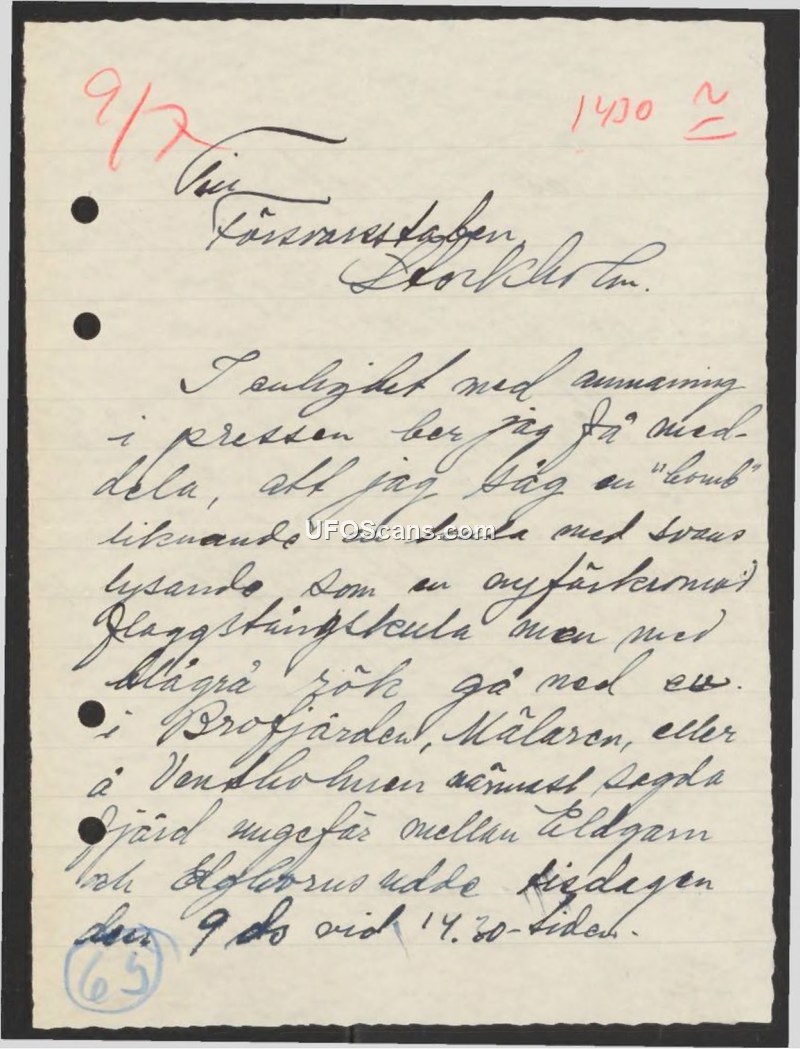 9/7
1430 ~
Till
Försvarsstaben
Stockholm.
I enlighet med anmaning
i pressen ber jag få med-
dela, att jag såg en "bomb"
liknande med svans
UFOScans.com
lysande som en nyförkromad
flaggstångskula men med
blågrå rök gå ned
i Brofjärden, Mälaren, eller
å Ventholmen närmast sagda
fjärd ungefär mellan Eldgarn
och udde tisdagen
den 9 ds vid 14.30-tiden.
65